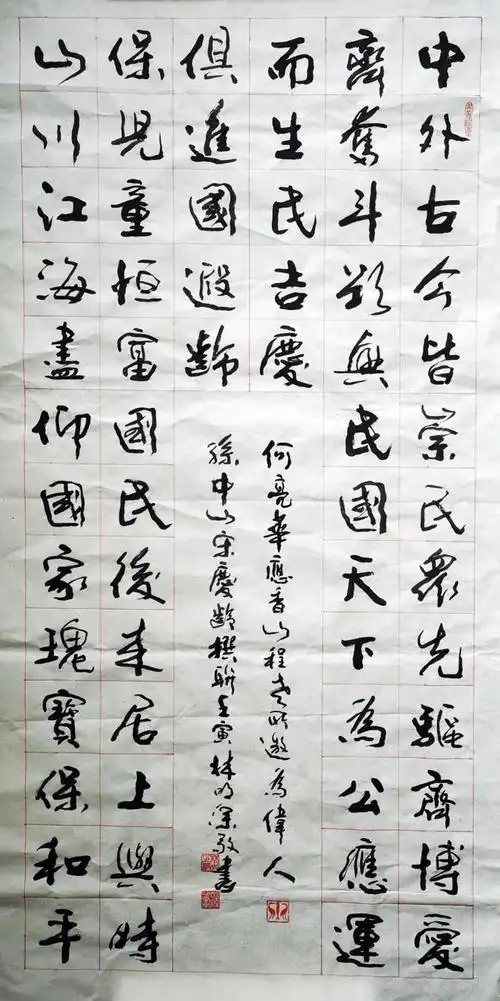 中外古今皆崇民眾先驅齊博愛
齊奮斗欲興民國天下為公應運
而生民吉慶
山川江海盡仰國家瑰寶保和平
保児童恒富國民後来居上與時
俱進國遐齡
何亮華應香山程老所邀為偉人
孫中山宋慶齡撰聯壬寅林明深敬書